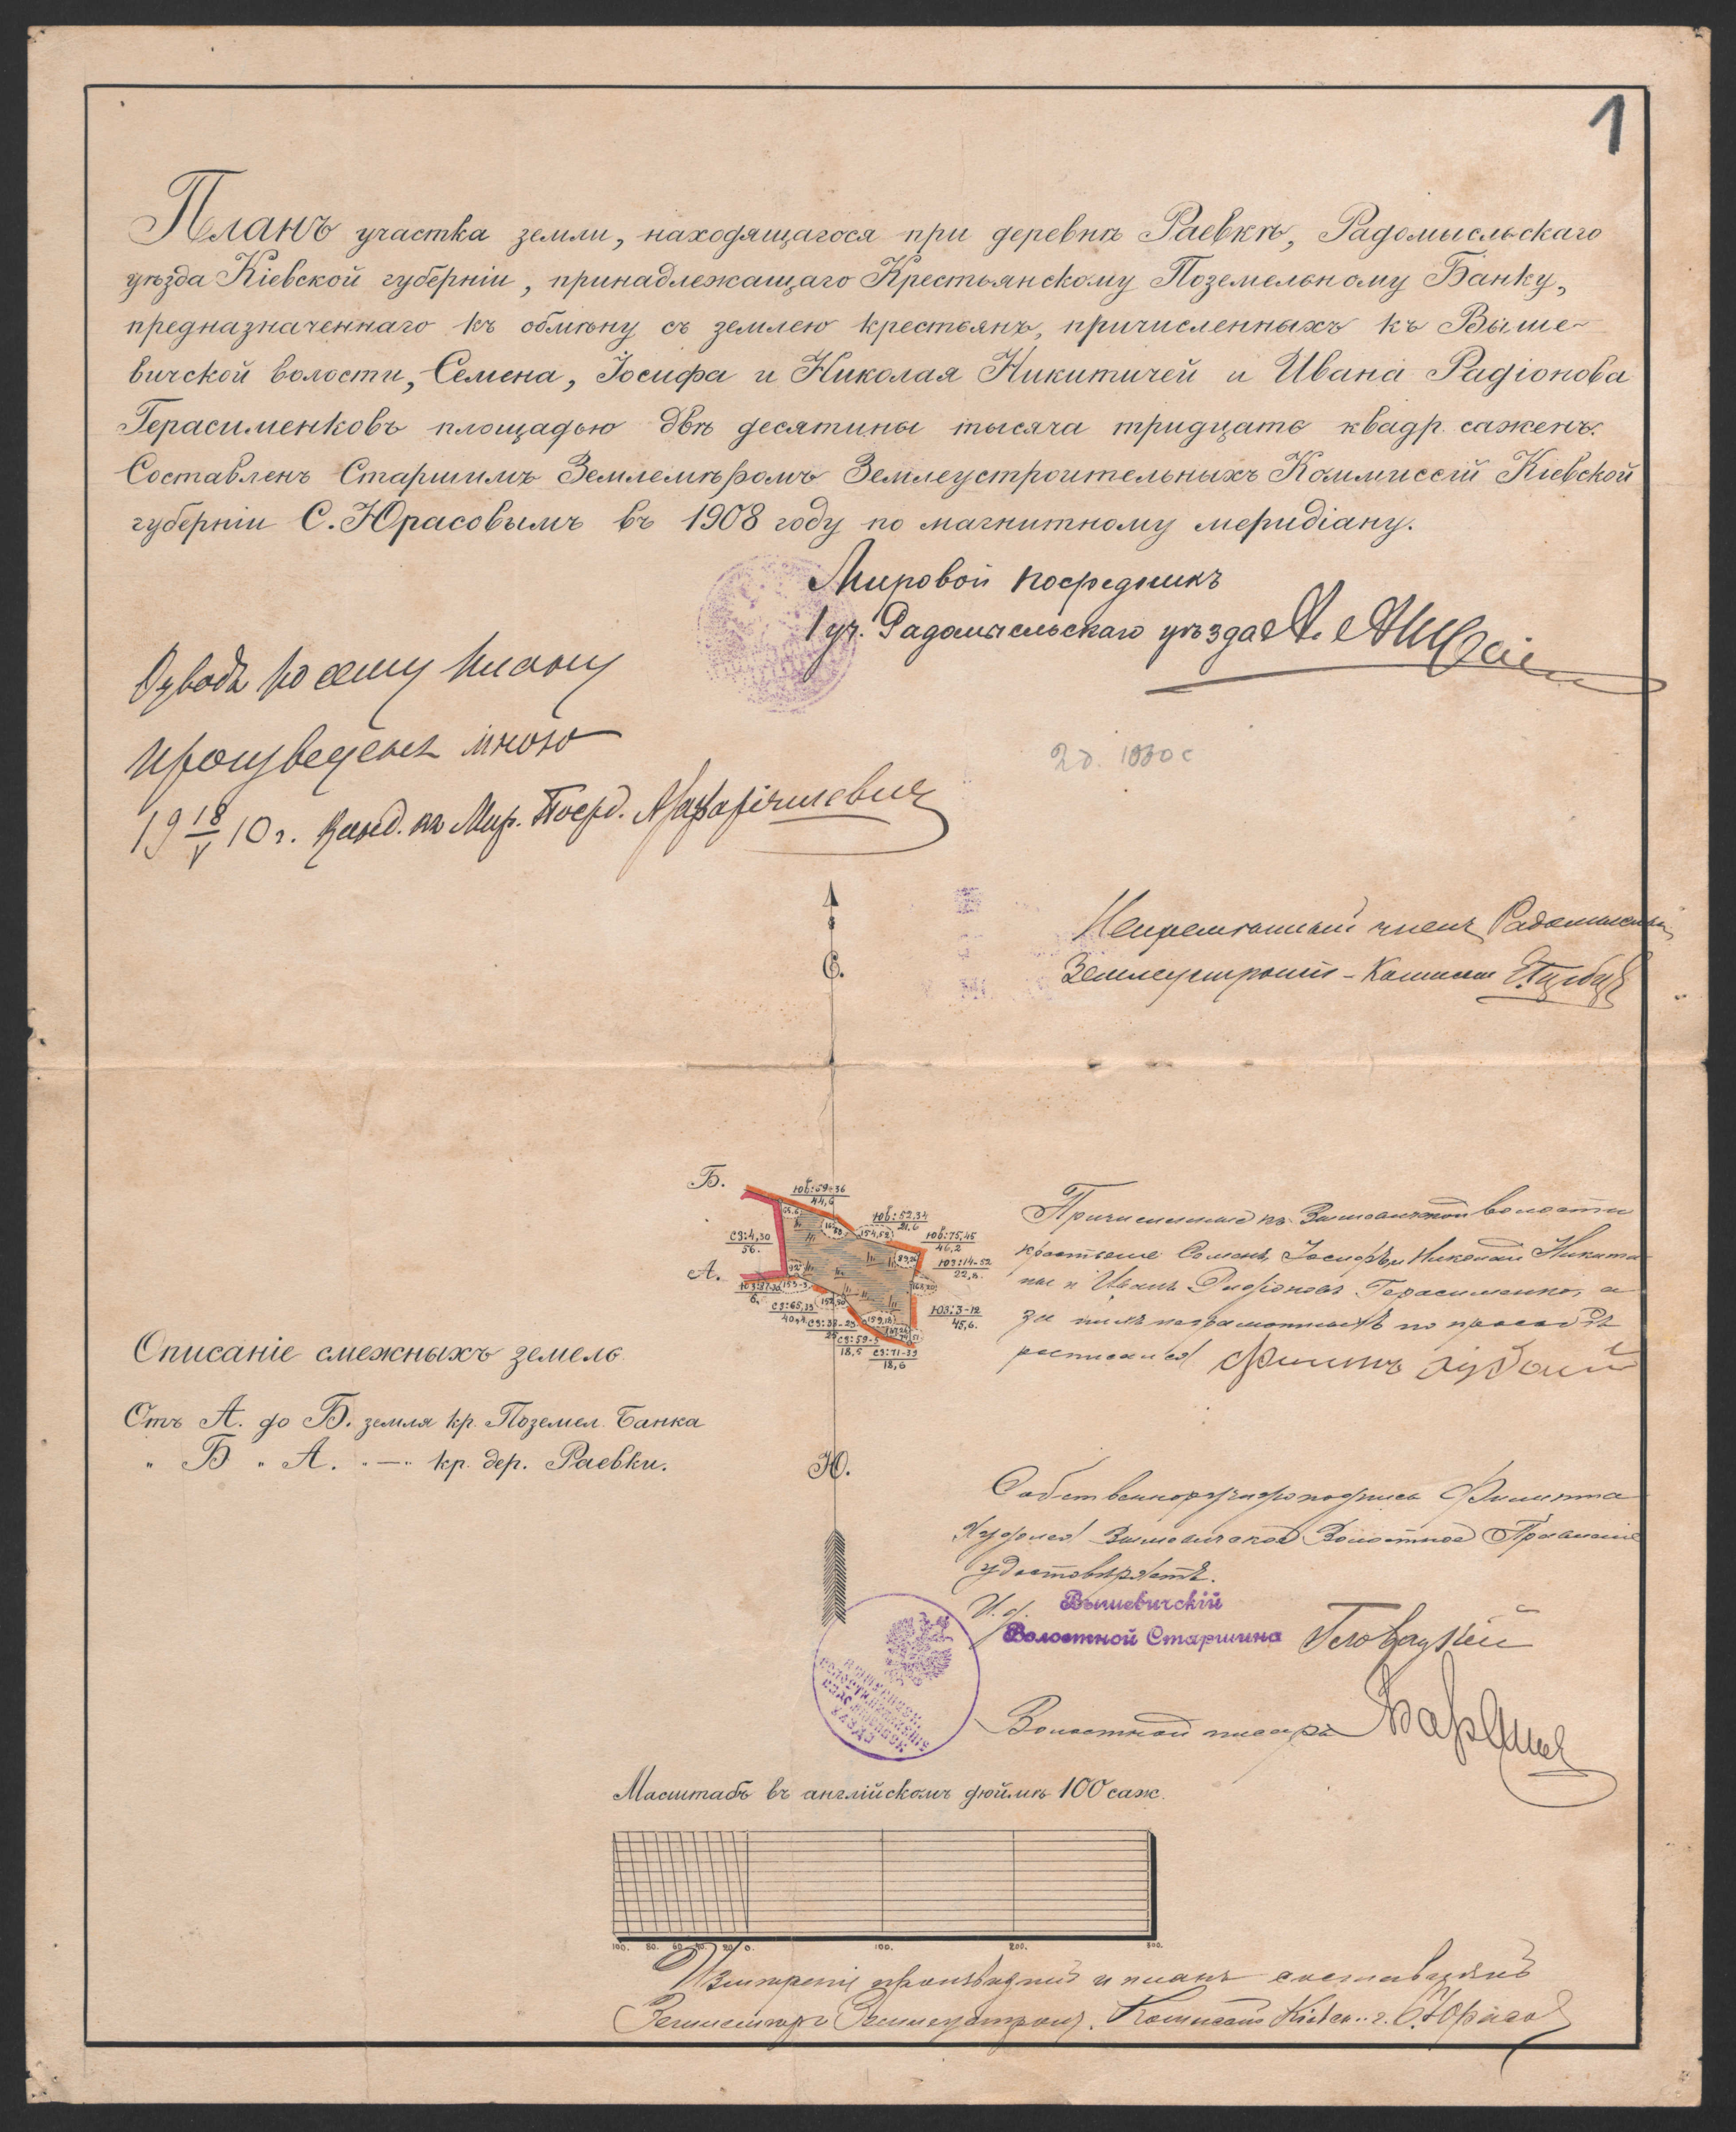 1
Планъ участка земли, находящагося при деревнѣ Раевкѣ, Радомысльскаго
уѣзда Кіевской губерніи, принадлежащаго Крестьянскому Поземельному Банку,
предназначеннаго къ обмѣну съ землею крестьянъ, причисленныхъ къ Выше-
вичской волости, Семена, Іосифа и Николая Никитичей и Ивана Радіонова
Герасименковъ площадью двѣ десятины тысяча тридцать квадр. сажень.
Составленъ Старшимъ Землемѣромъ Землеустроительныхъ Коммиссій Кіевской
губерніи С. Юрасовымъ въ 1908 году по магнитному меридіану.
Мировой посредникъ
1 уч. Радомысльскаго уѣзда
Отводъ по сему плану
произведенъ мною
19 18/V 10 г. Канд. къ Мир. Поср.
2 д. 1030 с
Непремѣнный членъ Радомысльской
Землеустроит- Комиссіи
С.
Б.
ЮВ:59-36
44,6
ЮВ:52,34
21,6
ЮВ:75,45
46,2
ЮЗ:14-52
22,
ЮЗ:3-12
45,6.
СЗ:71-39
18,6
СЗ:59-5
18,5
СЗ:38-29
25
СЗ:65,39
40,4
6,
А.
СЗ:4,30
56.
Причисленные къ Вышевичской волости
крестьяне Семенъ, Іосифъ и Николай Никити-
ны и Иванъ Радіоновъ Герасименко, а
за нихъ неграмотныхъ по просьбѣ
росписался Филиппъ Худолій
Описаніе смежныхъ земель
Отъ А. до Б. земля кр. Поземел. Банка
" Б " А. "—" кр. дер. Раевки.
Ю.
Собственноручную подпись Филиппа
Худолея Вышевичское Волостное Правленіе
удостовѣряетъ.
И. д. Вышевичскій
Волостной Старшина Головацкій
Волостной писарь
Масштабъ въ англійскомъ дюймѣ 100 саж.
100. 80. 60. 40. 20. 0. 100. 200. 300.
Измѣреніе произвелъ и планъ составилъ
Землемѣръ Землеустроит. Комиссій Кіевск. г. С. Юрасов